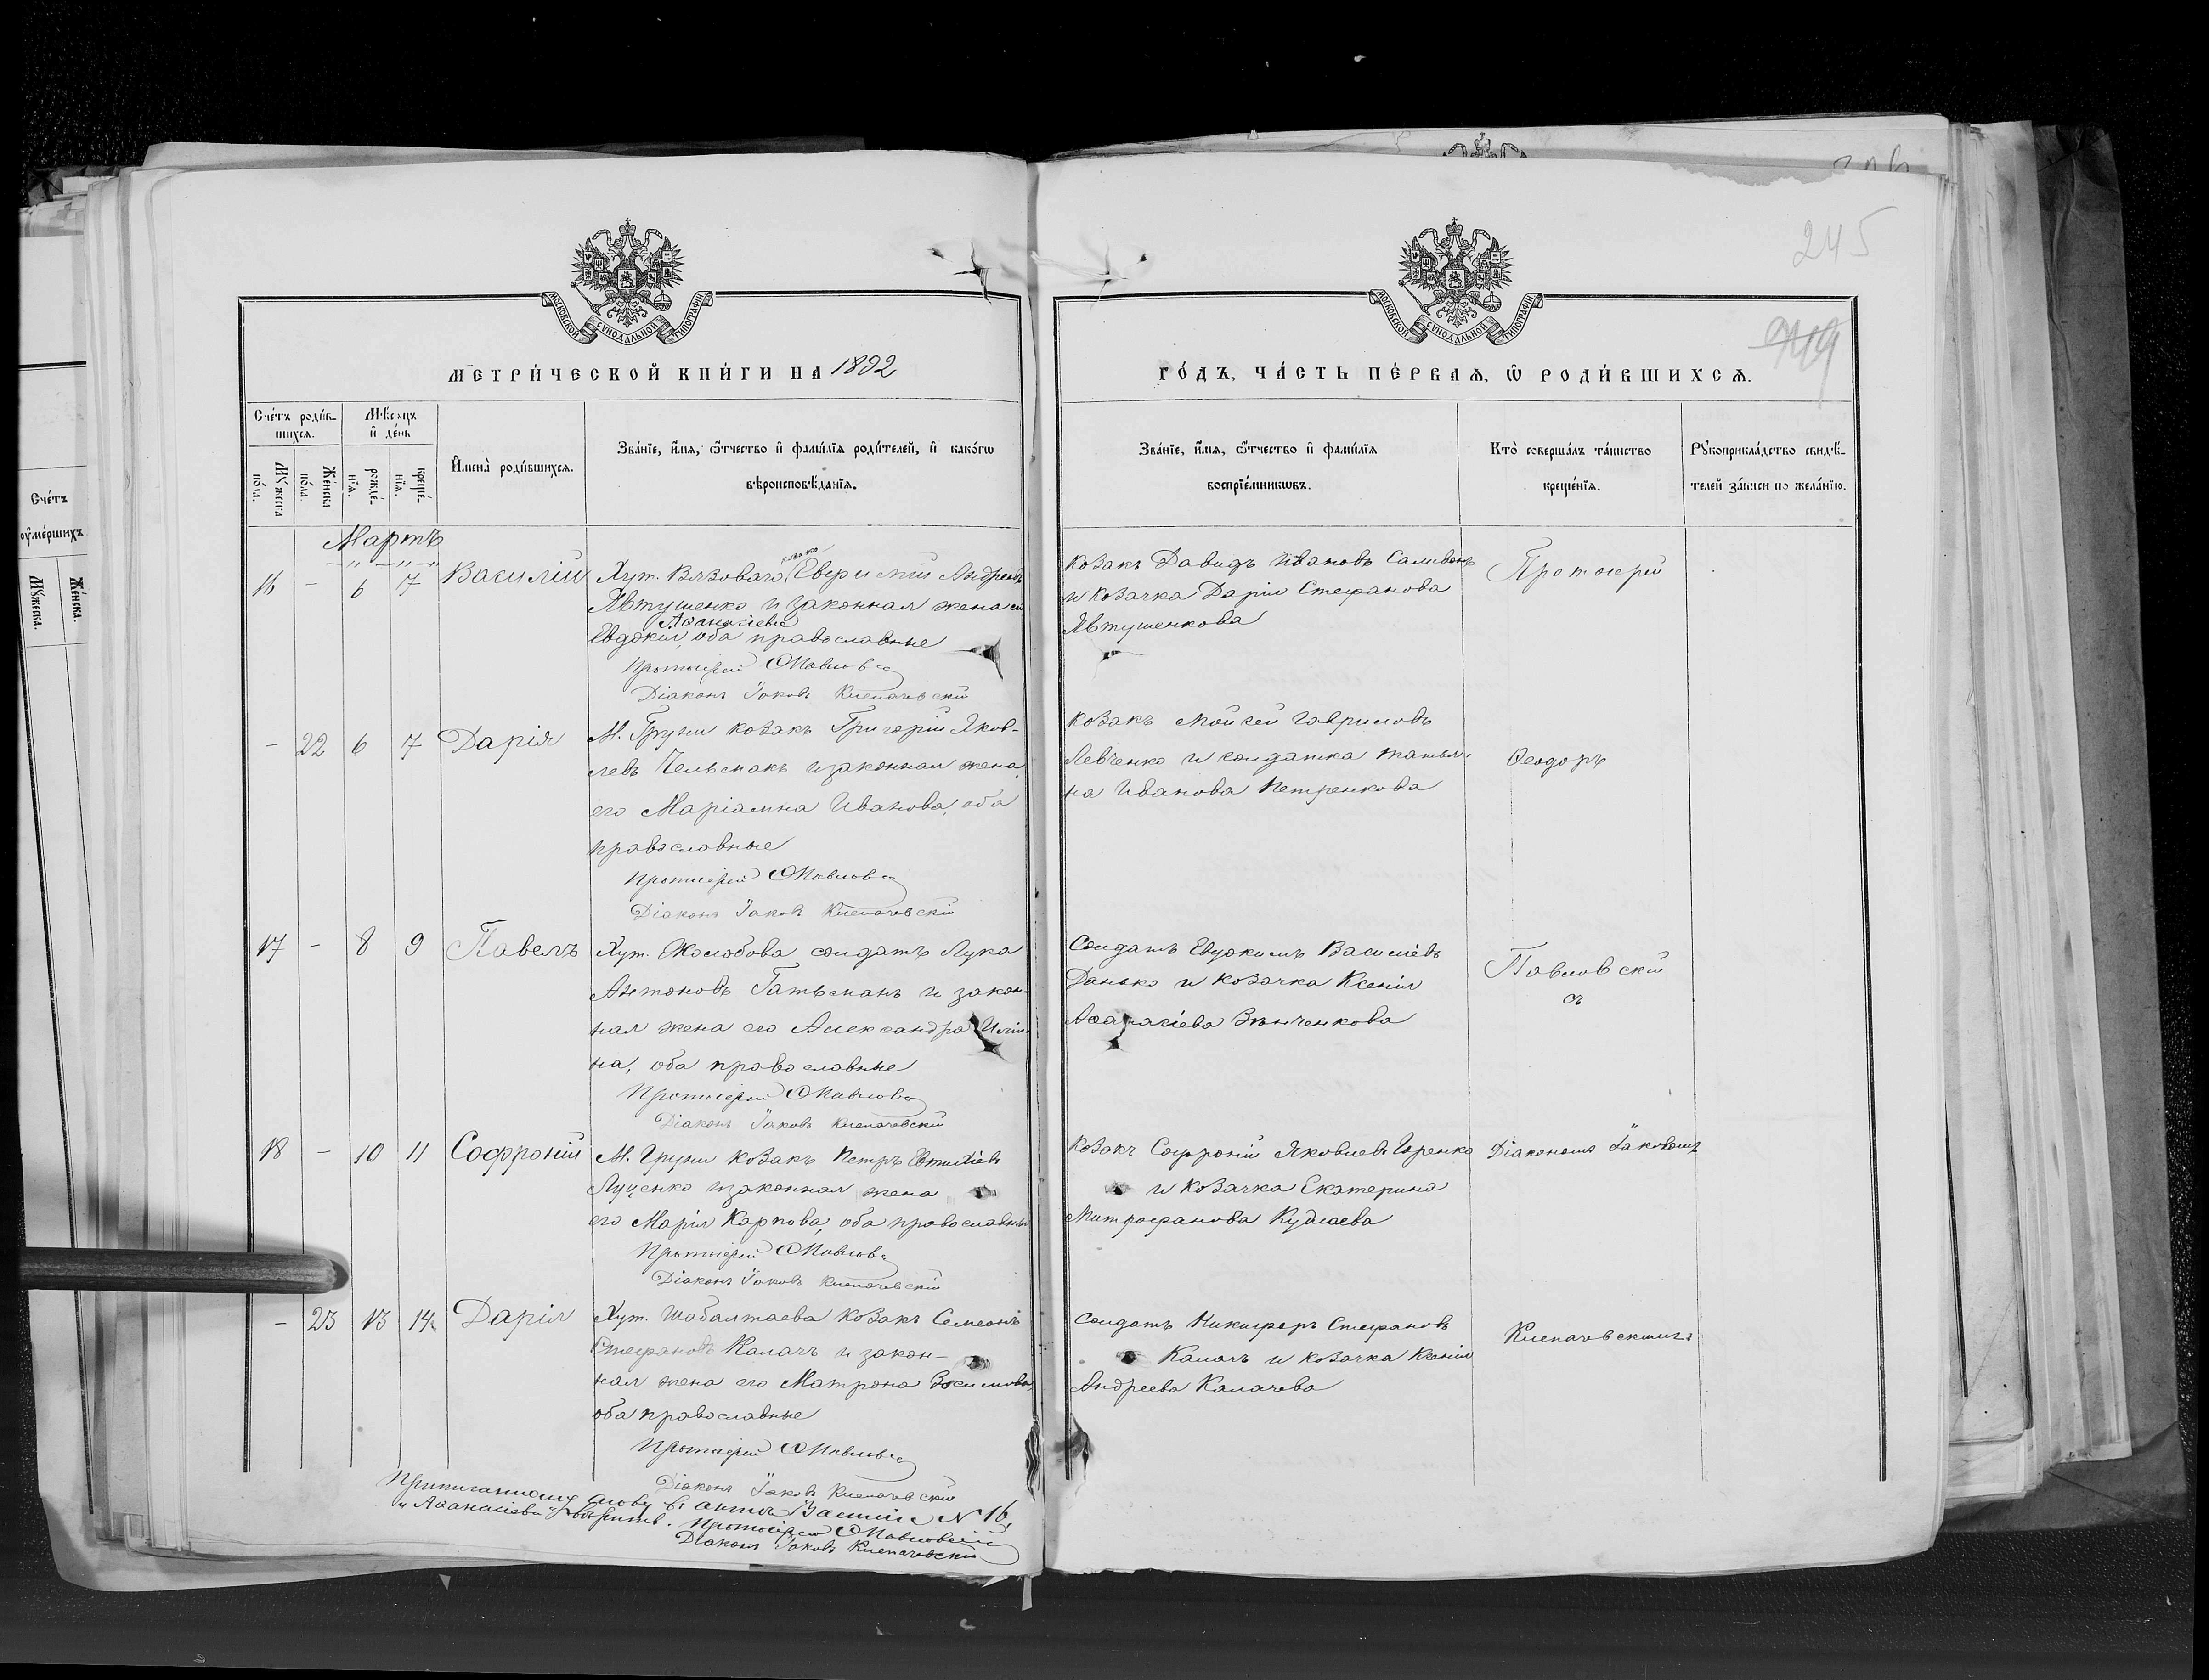 245
949
МОСКОВСКОЙ СѴНОДАЛЬНОЙ ТИПОГРАФІИ
МОСКОВСКОЙ СѴНОДАЛЬНОЙ ТИПОГРАФІИ
МЕТРИ́ЧЕСКОЙ КНИ́ГИ НА 1892
ГО́ДЪ, ЧА́СТЬ ПЕ́РВАѦ, Ѡ РОДИ́ВШИХСѦ.
Сче́тъ роди́в-
шихсѧ.
Мꙋ́жеска по́ла.
Же́нска по́ла.
Мѣ́сѧцъ и де́нь
рожде́-нїѧ.
креще́-нїѧ.
Имена̀ роди́вшихсѧ.
Зва́нїе, и́мѧ, ѻ́тчество и фамѝлїѧ роди́телей, и како́гѡ
вѣроисповѣ́данїѧ.
Зва́нїе, и́мѧ, ѻ́тчество и фамѝлїѧ
воспрїе́мникѡвъ.
Кто̀ соверша́лъ та́инство
креще́нїѧ.
Рꙋкоприкла́дство свидѣ́-
телей за́писи по жела́нїю.
Сче́тъ
ᲂумершихъ
Мꙋ́жеска.
Же́нска.
Мартъ
16 - 6 7 Василій
козакъ
Хут. Вязоваго, Евфимій Андреевъ
Явтушенко и законная жена его
Аѳанасіева
Евдокія, оба православные
Протоіерей Ѳ Павловс
Діаконъ Іаковъ Клепачевскій
козакъ Давидъ Ивановъ
и козачка Дарія Стефанова
Явтушенкова
Протоіерей
- 22 6 7 Дарія
М. Груни козакъ Григорій Яков-
левъ Чельмакъ и законная жена
его Маріамна Иванова, оба
православные
Протоіерей Ѳ Павловс
Діаконъ Іаковъ Клепачевскій
козакъ Моисей Гавриловъ
Левченко и солдатка Татья-
на Иванова Петренкова
Ѳеодоръ
17 - 8 9 Павелъ
Хут. Жолобова солдатъ Лука
Антоновъ Гатьманъ и закон-
ная жена его Александра Ильи-
на, оба православные
Протоіерей Ѳ Павловс
Діаконъ Іаковъ Клепачевскій
Солдатъ Евдокимъ Василіевъ
Данько и козачка Ксенія
Аѳанасіева Вѣнченкова
Павловскій
съ
18 - 10 11 Софроній
М. Груни козакъ Петръ Евтихіевъ
Луценко и законная жена
его Марія Карпова, оба православные
Протоіерей Ѳ Павловс
Діаконъ Іаковъ Клепачевскій
козакъ Софроній Яковлевъ
и козачка Екатерина
Митрофанова Кудлаева
Діакономъ Іаковомъ
- 23 13 14 Дарія
Хут. Шабалтаева козакъ Семеонъ
Стефановъ Калачъ и закон-
ная жена его Матрона Зосимова
оба православные
Протоіерей Ѳ Павловс
Діаконъ Іаковъ Клепачевскій
Солдатъ Никифоръ Стефановъ
Калачъ и козачка Ксенія
Андреева Калачева
Клепачевскимъ
слову въ актѣ Василія № 16
и Аѳанасіева вѣрить. Протоіерей Ѳ Павловскій
Діаконъ Іаковъ Клепачевскій